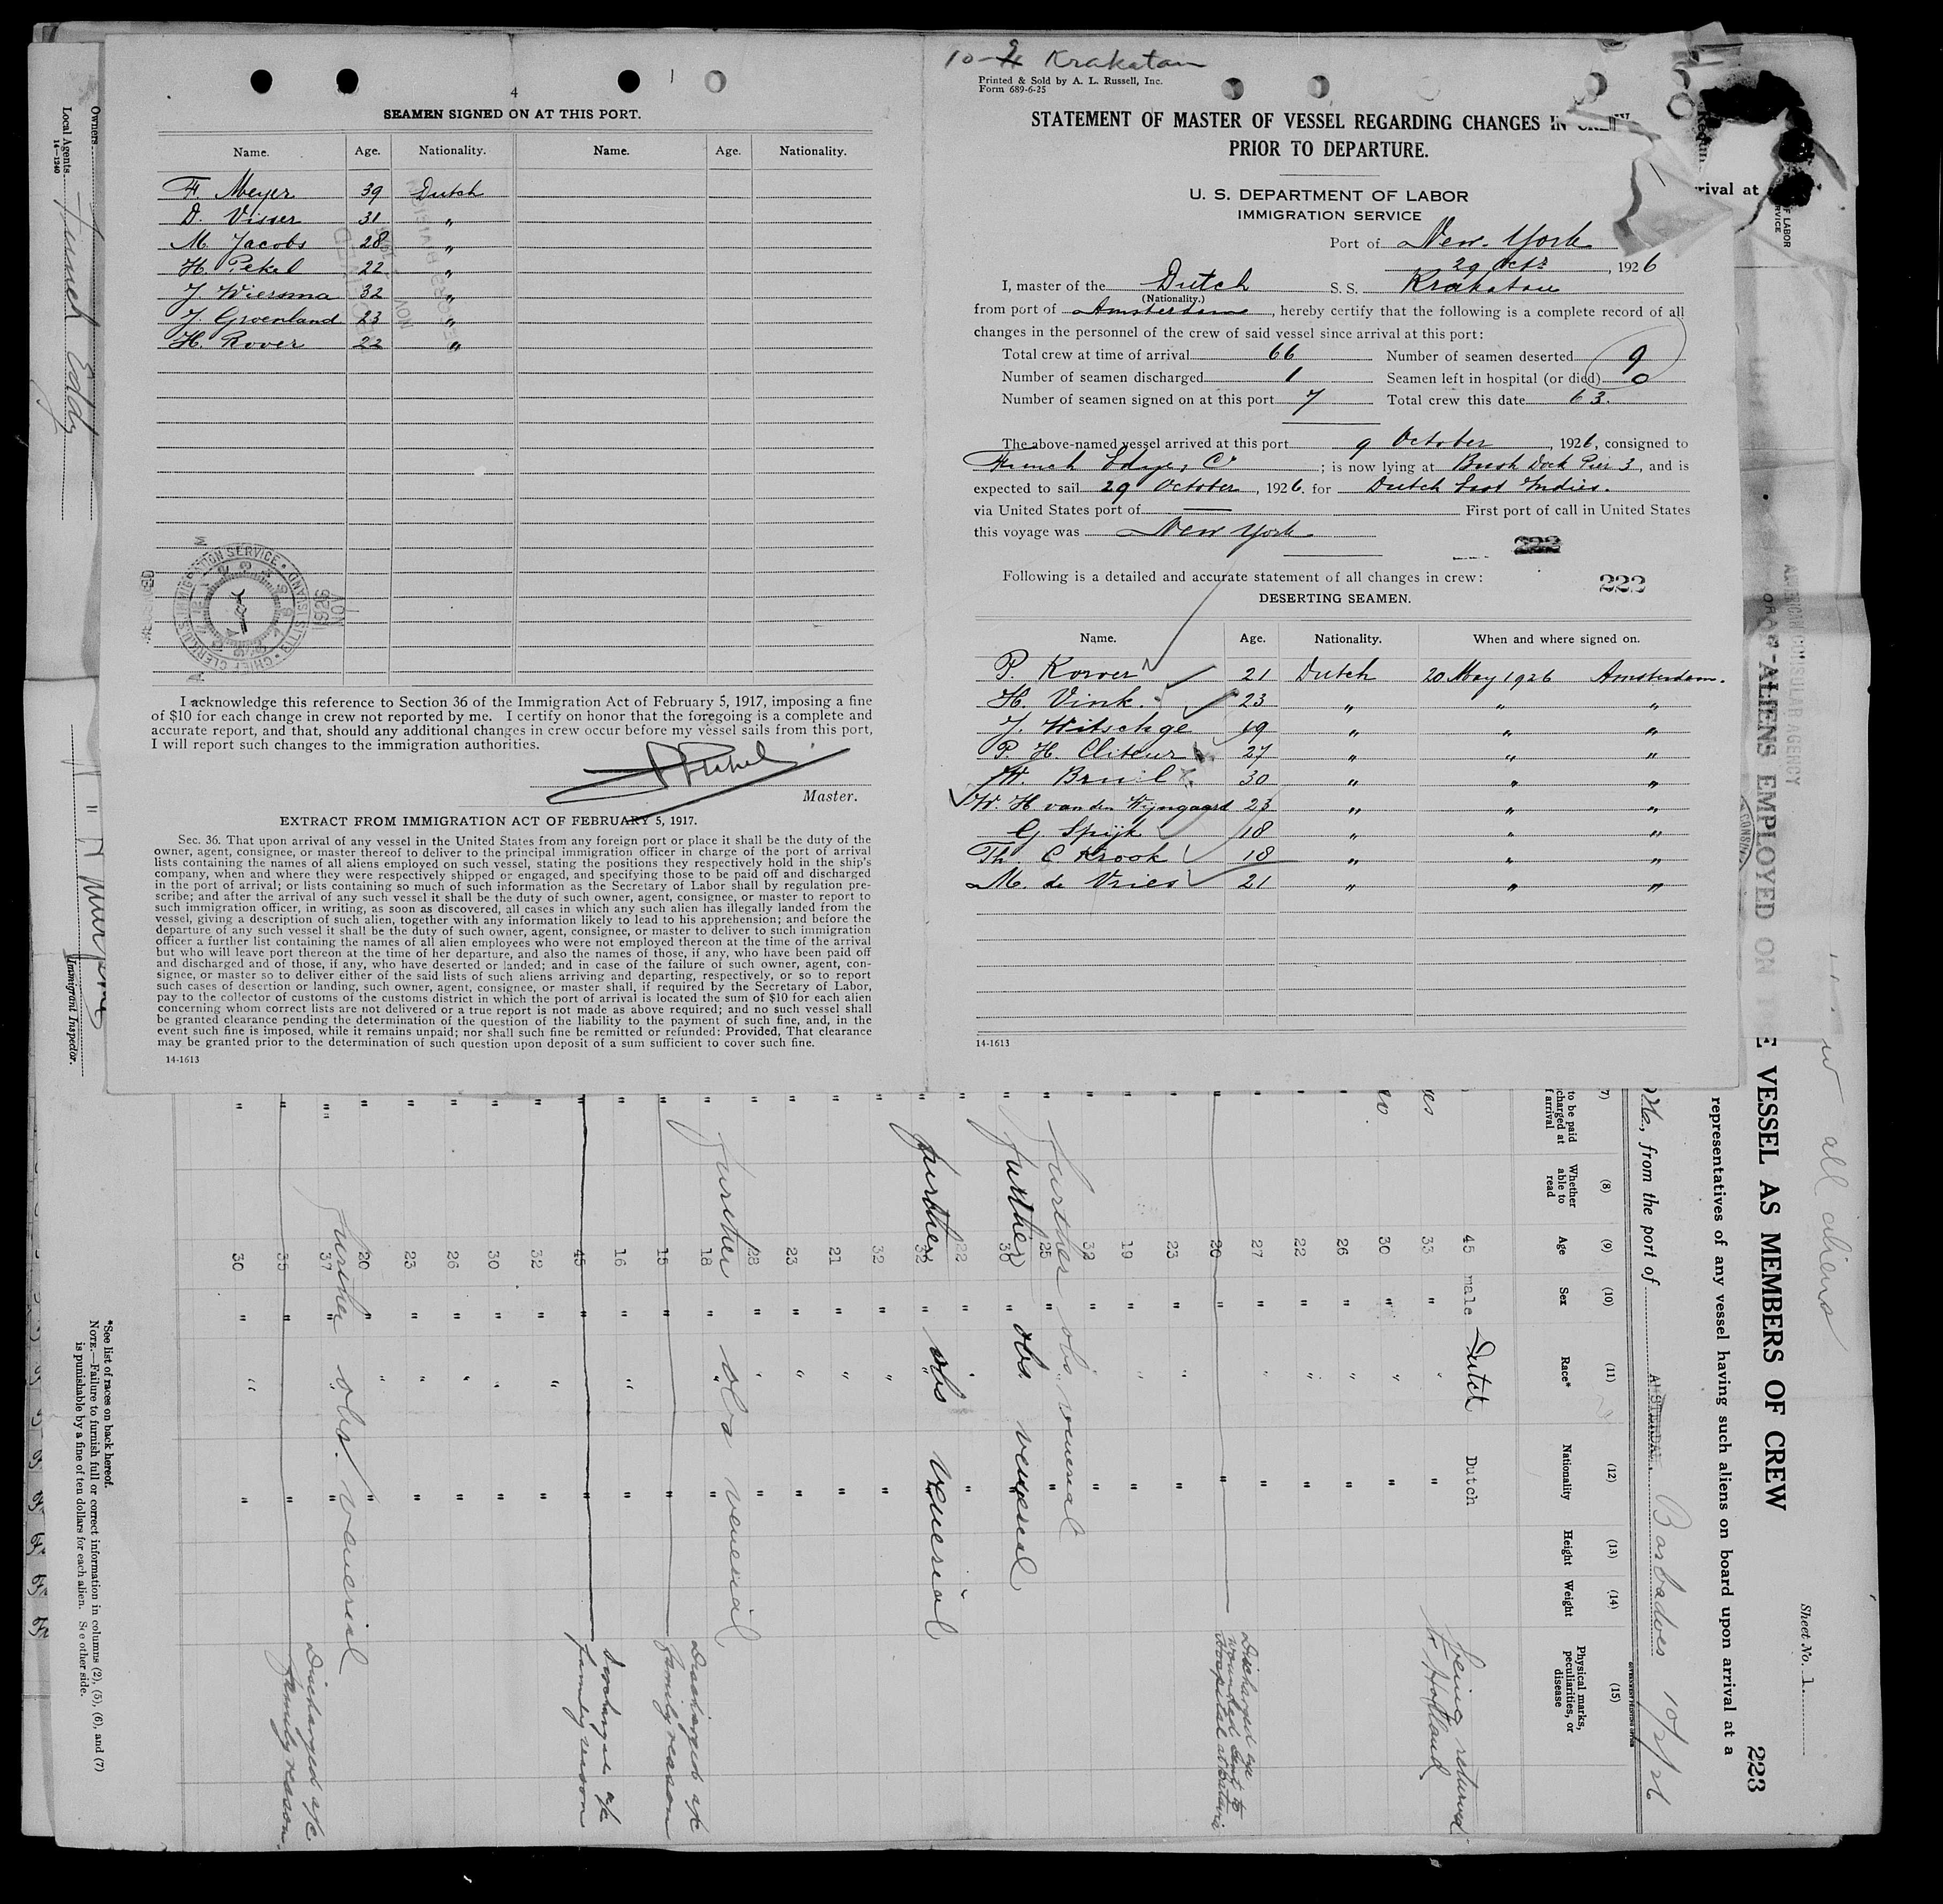 4
SEAMEN SIGNED ON AT THIS PORT.
Name. Age. Nationality. Name. Age. Nationality.
F. Meyer 39 Dutch
D. Visser 31 "
M. Jacobs 28 "
H. Pekel 22 "
J. Wiersma 32 "
J. Groenland 23 "
H. Rover 22 "
I acknowledge this reference to Section 36 of the Immigration Act of February 5, 1917, imposing a fine
of $10 for each change in crew not reported by me. I certify on honor that the foregoing is a complete and
accurate report, and that, should any additional changes in crew occur before my vessel sails from this port,
I will report such changes to the immigration authorities.
Master.
EXTRACT FROM IMMIGRATION ACT OF FEBRUARY 5, 1917.
Sec. 36. That upon arrival of any vessel in the United States from any foreign port or place it shall be the duty of the
owner, agent, consignee, or master thereof to deliver to the principal immigration officer in charge of the port of arrival
lists containing the names of all aliens employed on such vessel, stating the positions they respectively hold in the ship's
company, when and where they were respectively shipped or engaged, and specifying those to be paid off and discharged
in the port of arrival; or lists containing so much of such information as the Secretary of Labor shall by regulation pre-
scribe; and after the arrival of any such vessel it shall be the duty of such owner, agent, consignee, or master to report to
such immigration officer, in writing, as soon as discovered, all cases in which any such alien has illegally landed from the
vessel, giving a description of such alien, together with any information likely to lead to his apprehension; and before the
departure of any such vessel it shall be the duty of such owner, agent, consignee, or master to deliver to such immigration
officer a further list containing the names of all alien employees who were not employed thereon at the time of the arrival
but who will leave port thereon at the time of her departure, and also the names of those, if any, who have been paid off
and discharged and of those, if any, who have deserted or landed; and in case of the failure of such owner, agent, con-
signee, or master so to deliver either of the said lists of such aliens arriving and departing, respectively, or so to report
such cases of desertion or landing, such owner, agent, consignee, or master shall, if required by the Secretary of Labor,
pay to the collector of customs of the customs district in which the port of arrival is located the sum of $10 for each alien
concerning whom correct lists are not delivered or a true report is not made as above required; and no such vessel shall
be granted clearance pending the determination of the question of the liability to the payment of such fine, and, in the
event such fine is imposed, while it remains unpaid; nor shall such fine be remitted or refunded: Provided, That clearance
may be granted prior to the determination of such question upon deposit of a sum sufficient to cover such fine.
14-1613
Krakatau
Printed & Sold by A. L. Russell, Inc.
Form 689-6-25
STATEMENT OF MASTER OF VESSEL REGARDING CHANGES IN CREW
PRIOR TO DEPARTURE.
U. S. DEPARTMENT OF LABOR
IMMIGRATION SERVICE
Port of New-York
29 Octr, 1926
I, master of the Dutch S. S. Krakatau
(Nationality.)
from port of Amsterdam, hereby certify that the following is a complete record of all
changes in the personnel of the crew of said vessel since arrival at this port:
Total crew at time of arrival 66 Number of seamen deserted 9
Number of seamen discharged 1 Seamen left in hospital (or died) 0
Number of seamen signed on at this port 7 Total crew this date 63.
The above-named vessel arrived at this port 9 October, 1926, consigned to
Funch Edye, Co; is now lying at Bush Dock Pier 3, and is
expected to sail 29 October, 1926. for Dutch East Indies.
via United States port of First port of call in United States
this voyage was New York
222
Following is a detailed and accurate statement of all changes in crew:
222
DESERTING SEAMEN.
Name. Age. Nationality. When and where signed on.
P. Korver 21 Dutch 20 May 1926 Amsterdam.
H. Vink 23 " " "
J. Witschge 19 " " "
P. H. Cliteur 27 " " "
W. Bruil 30 " " "
W. H van den Wyngaard 23 " " "
G. Spijk 18 " " "
Th. C Krook 18 " " "
M. de Vries 21 " " "
14-1613
Owners
Local Agents Funch Edye
14-1240
Immigrant Inspector.
Sheet No. 1
223
ALIENS EMPLOYED ON THE VESSEL AS MEMBERS OF CREW
AMERICAN CONSULAR AGENCY
all aliens
representatives of any vessel having such aliens on board upon arrival at a
, from the port of Barbadoes 10/2/26
(7) (8) (9) (10) (11) (12) (13) (14) (15)
to be paid
charged at
f arrival
Whether
able to
read
Age Sex Race* Nationality Height Weight
Physical marks,
peculiarities, or
disease
45 male Dutch Dutch
33 " " " being returned to Holland
30
26
22
27
20 Discharged eye wounded Sent to Hospital at Batavia
23
19
32
25 further obs. venereal
30 further obs. venereal
22
32 further obs venereal
32
21
23
28
18 further obs venereal
15 Discharged a/c family reason
16
45 Discharged a/c family reason
32
30
26
23
20
37 further obs. venereal
35 Discharged a/c family reason
30
*See list of races on back hereof.
NOTE.—Failure to furnish full or correct information in columns (2), (5), (6), and (7)
is punishable by a fine of ten dollars for each alien. See other side.